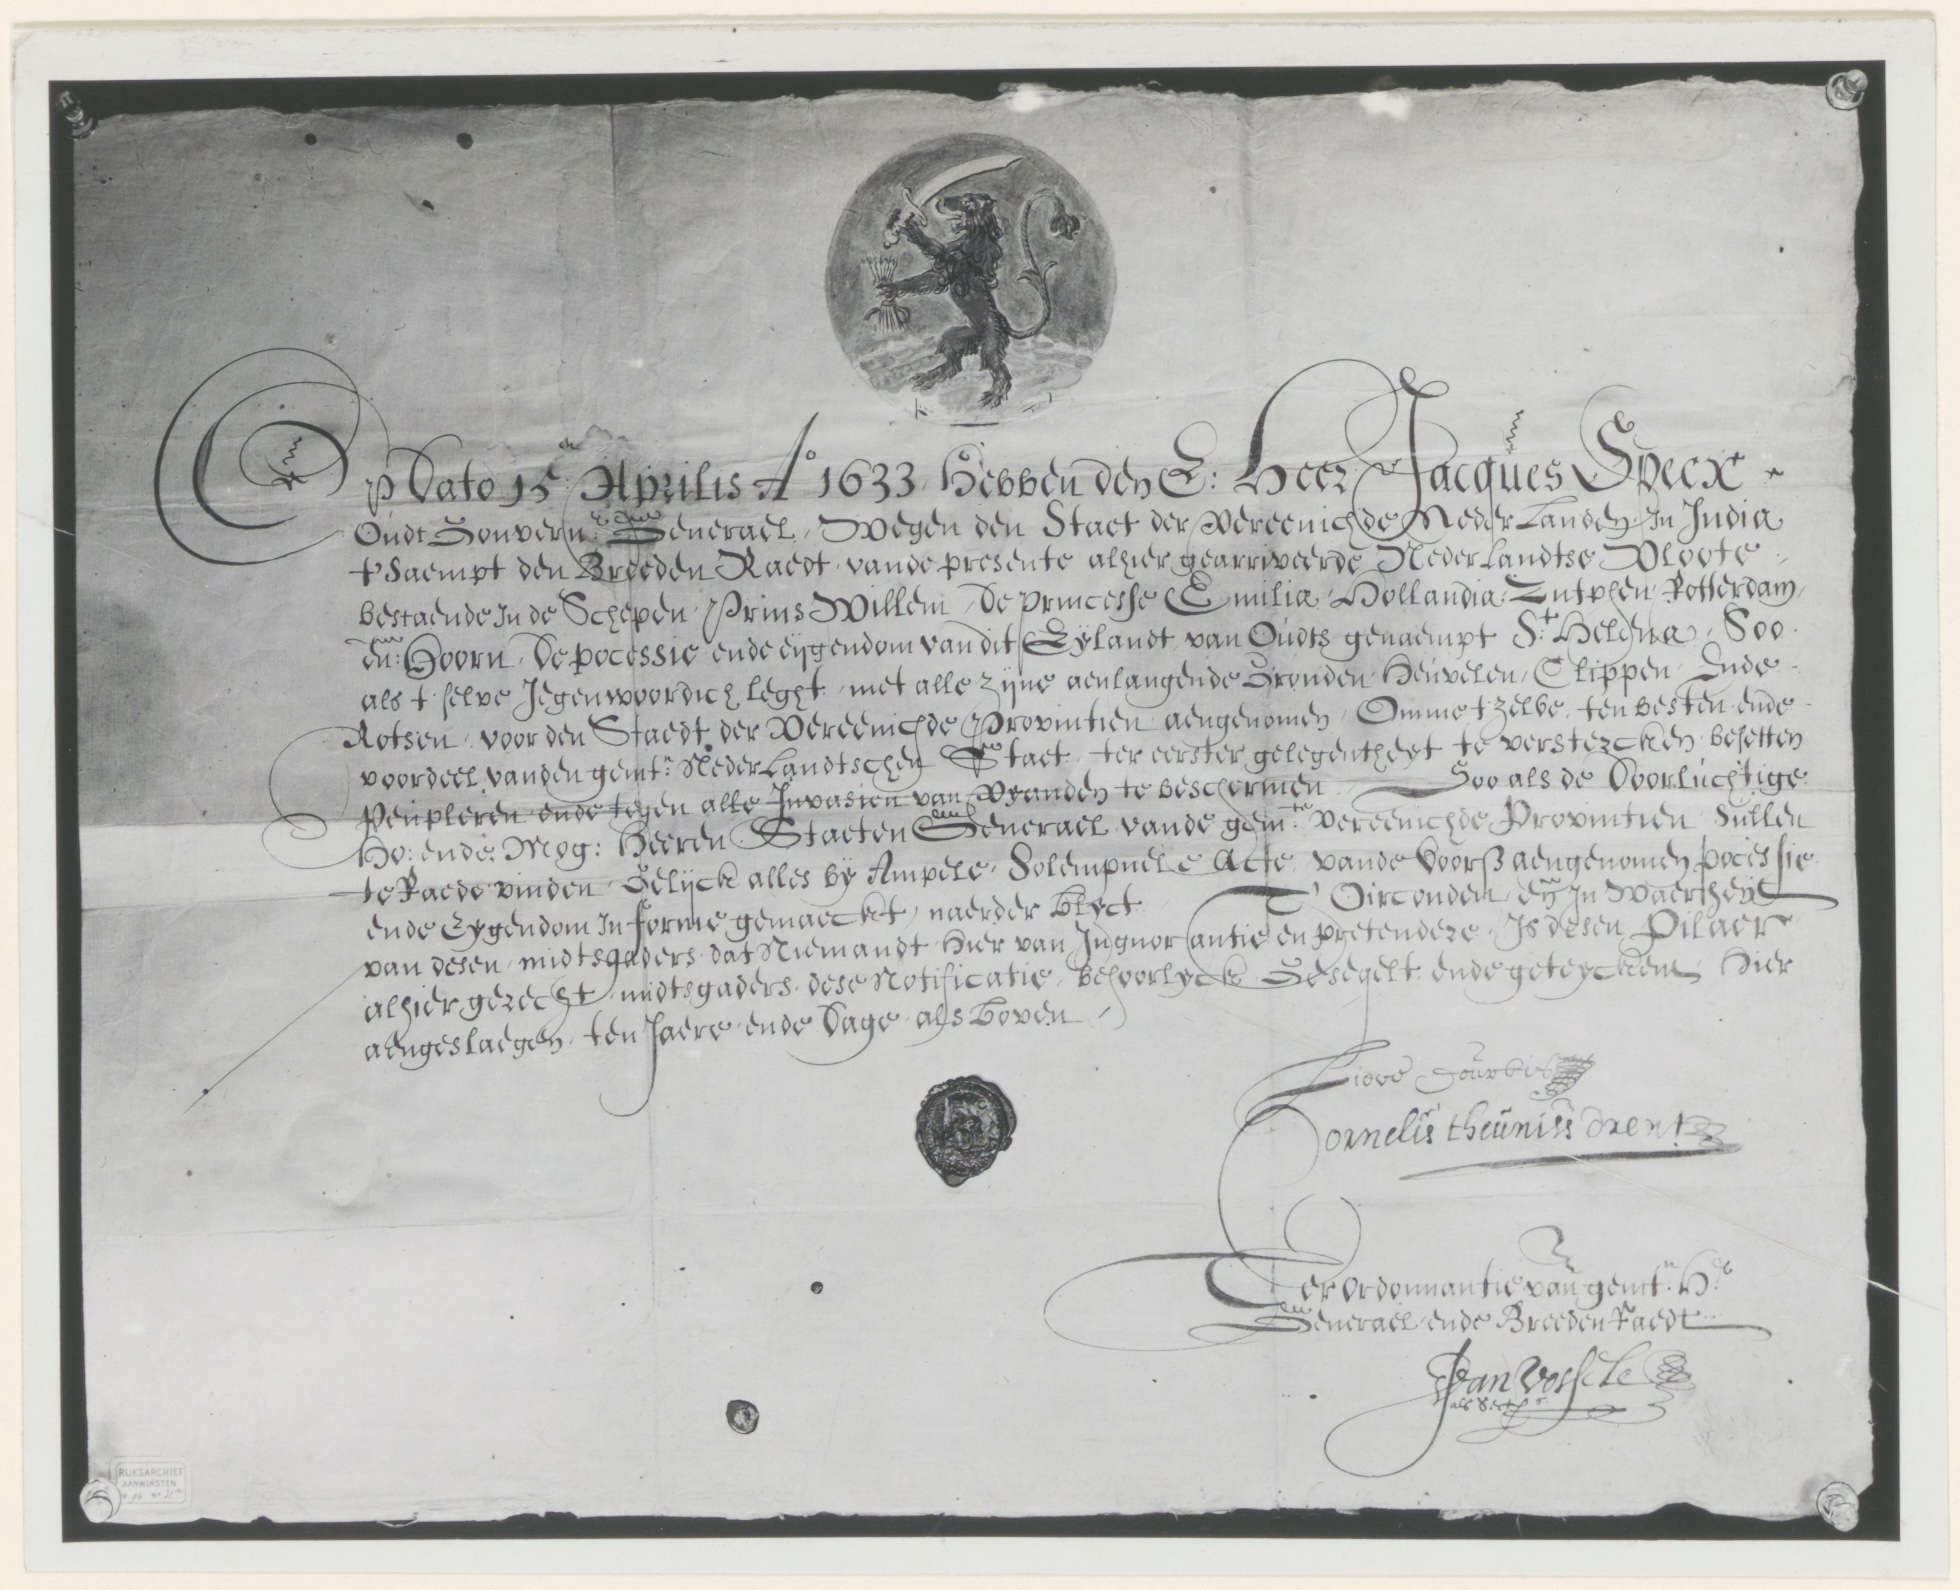 Op Dato 15 den Aprilis Ao 1633 Hebben den E: Heer Jacques Specx
Oudt Gouvern: Generael, Wegen den Staet der Vereenichde Nederlanden In India
t'Saempt den Breeden Raedt vande presente alhier gearriveerde Nederlandtse Vloote
bestaende In de Schepen Prins Willem, De princesse Emilia, Hollandia, Zutphen, Rotterdam,
en: Hoorn, De pocessie ende eijgendom van dit Eijlandt van Oudts genaempt St. Helena, Soo
als t selve Jegenwoordich leght, met alle zijne aenlangende Gronden Heuvelen, Clippen Ende
Rotsen, voor den Staedt der Vereenichde Provintien aengenomen, Omme t zelve, ten besten ende
voordeel vanden gemtn. Nederlandtschen Staet, ter eerster gelegentheyt te verstercken besetten
Peupleren ende tegen alle Invasien van Vyanden te beschermen. Soo als de Doorluchtige
Ho: ende Mog: Heeren Staeten Generael vande gemte: Vereenichde Provintien Sullen
te Raede vinden, Gelijck alles bij Ampele, Solempnele Acte vande voorsz aengenomen pocessie
ende Eygendom In forme gemaeckt, naerder blyct. T' Oirconden en In Waerheyt
van desen, midtsgaders dat Niemandt hier van Ingnorantie en pretendere, Is desen Pilaer
alhier gerecht, midtsgaders dese Notificatie, behoorlyck Gesegelt ende geteyckent, Hier
aengeslaegen, ten Jaere ende Dage als boven
Cornelis theuniss
Ter Ordonnantie van gemtn. Hr
Generael ende Breeden Raedt
Jan
als Sects
RIJKSARCHIEF
AANWINSTEN